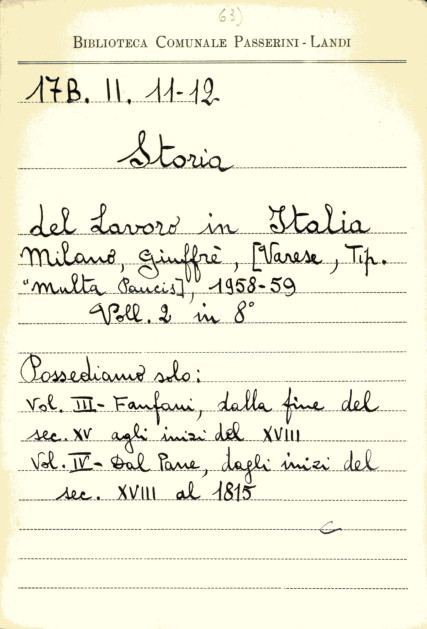 63)
BIBLIOTECA COMUNALE PASSERINI-LANDI
17B. II. 11-12
Storia
del Lavoro in Italia
Milano, Giuffrè, [Varese, Tip.
"Multa Paucis], 1958-59
Voll. 2 in 8°
Possediamo solo:
Vol. III- Fanfani, dalla fine del
sec. XV agli inizi del XVIII
Vol. IV- Dal Pane, dagli inizi del
sec. XVIII al 1815